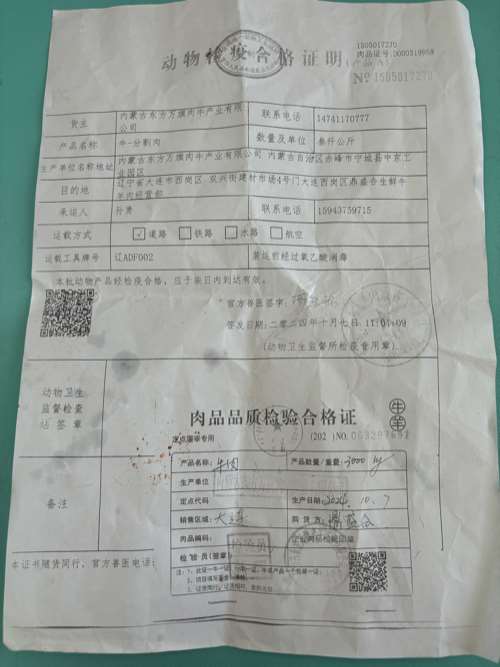 动物检疫合格证明
1505017270
肉品证号:0000319958
(产品A)
No 1505017270
货主
内蒙古东方万旗肉牛产业有限公司
联系电话
14741170777
产品名称
牛-分割肉
数量及单位
叁仟公斤
生产单位名称地址
内蒙古东方万旗肉牛产业有限公司 内蒙古自治区赤峰市宁城县中京工业园区
目的地
辽宁省大连市西岗区 双兴街建材市场4号门大连西岗区鼎盛合生鲜牛羊肉经营部
承运人
孙勇
联系电话
15943759715
运载方式
☑道路 □铁路 □水路 □航空
运载工具牌号
辽ADF002
装运前经过氧乙酸消毒
本批动物产品经检疫合格，应于柒日内到达有效。
官方兽医签字:
签发日期:二零二四年十月七日 11:04:09
(动物卫生监督所检疫食用章)
动物卫生
监督检查
站签章
肉品品质检验合格证
牛羊
定点屠宰专用
(202 )NO.
产品名称: 牛肉
产品数量/重量: 3000 kg
生产单位
定点代码
生产日期: 2024.10.7
销售区域: 大连
购货方: 鼎盛合
肉品编码:
企业肉品检验印章
检验员(签章)
检验员
备注
本证书随货同行，官方兽医电话: